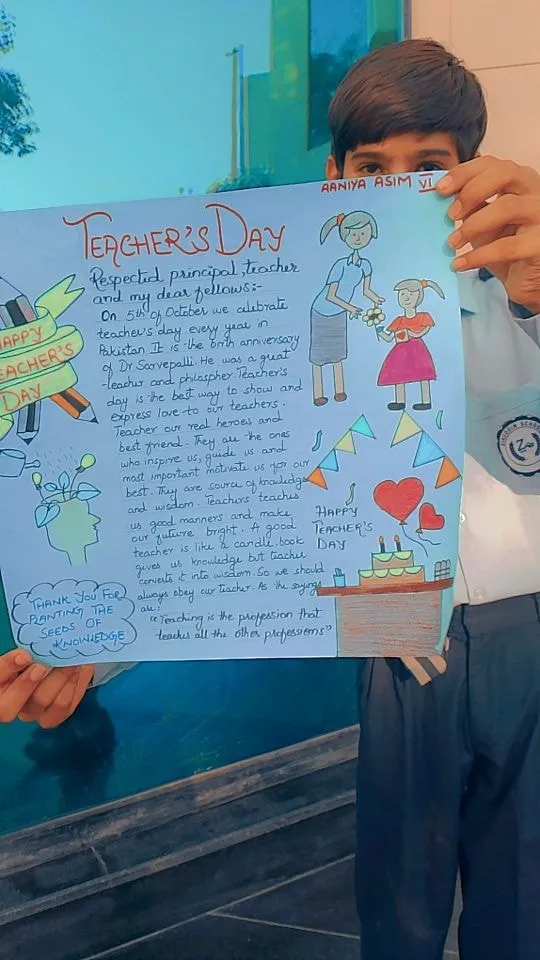 AANIYA ASIM VI
TEACHER'S DAY
Respected principal, teacher
and my dear fellows:-
On 5th of October we celebrate
teacher's day every year in
Pakistan It is the birth anniversary
of Dr Sarvepalli. He was a great
teacher and philaspher. Teacher's
day is the best way to show and
express love to our teachers.
Teacher our real heroes and
best friend. They are the ones
who inspire us, guide us and
most important motivate us for our
best. They are source of knowledge
and wisdom. Teachers teaches
us good manners and make
our future bright. A good
teacher is like a candle. book
gives us knowledge but teacher
converts it into wisdom. So we should
always obey our teacher. As the sayings
are:
"Teaching is the profession that
teaches all the other professions"
HAPPY
TEACHER'S
DAY
THANK YOU FOR
PLANTING THE
SEEDS OF
KNOWLEDGE
HAPPY
TEACHER'S
DAY